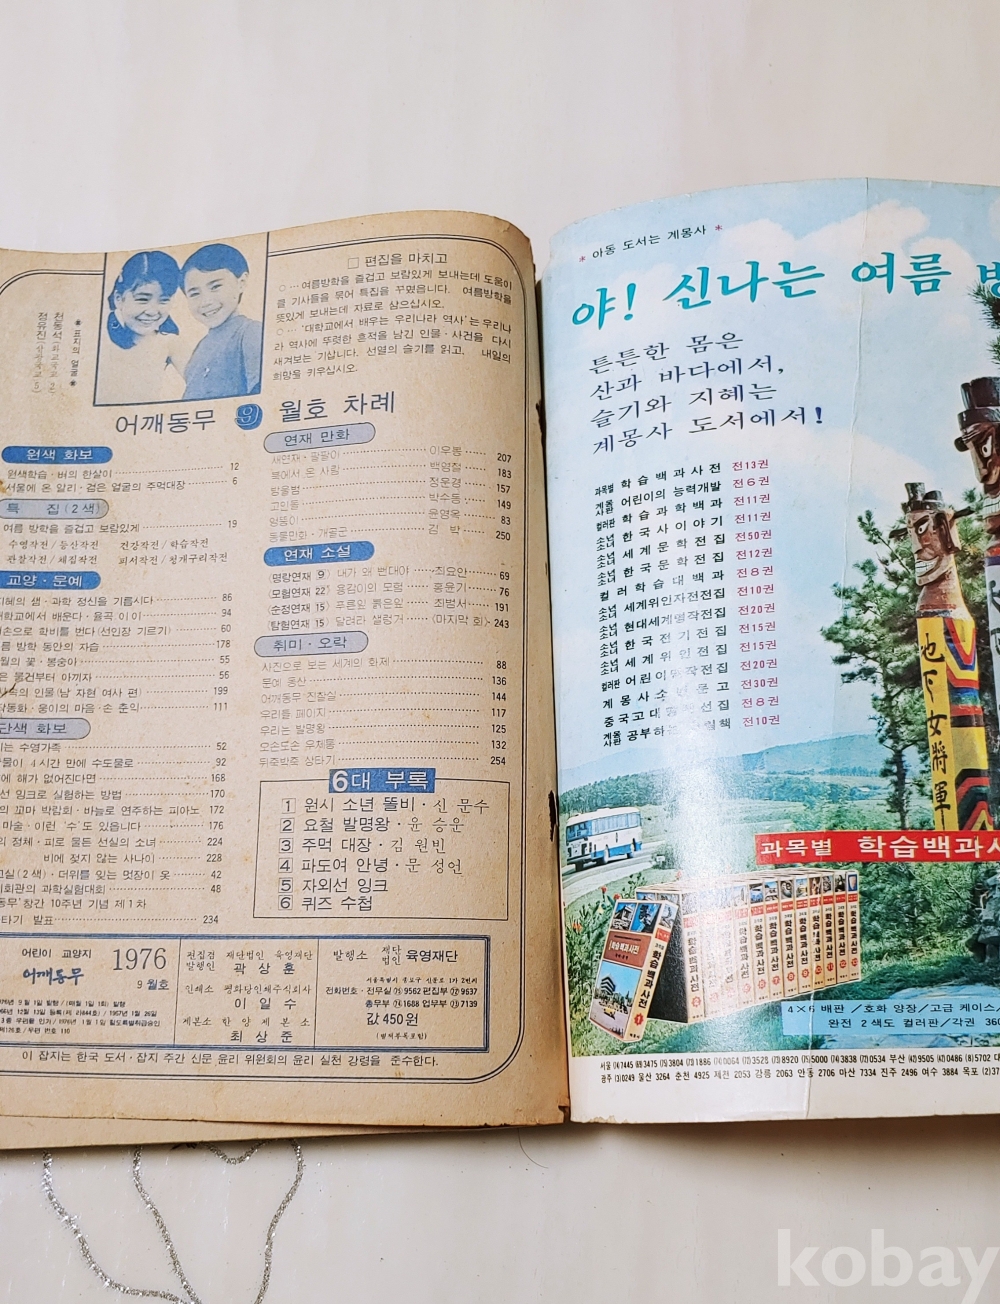 □ 편집을 마치고
○…여름방학을 즐겁고 보람있게 보내는데 도움이
될 기사들을 묶어 특집을 꾸몄읍니다. 여름방학을
뜻있게 보내는데 자료로 삼으십시오.
○…'대학교에서 배우는 우리나라 역사'는 우리나
라 역사에 뚜렷한 흔적을 남긴 인물·사건을 다시
새겨보는 기삽니다. 선열의 슬기를 읽고, 내일의
희망을 키우십시오.
※ 표지의 얼굴 ※
천동석
정유진
어깨동무 9 월호 차례
원색 화보
원색학습·벼의 한살이 12
서울에 온 알리·검은 얼굴의 주먹대장 6
특 집(2색)
여름 방학을 즐겁고 보람있게 19
수영작전/등산작전 건강작전/학습작전
관찰작전/채집작전 피서작전/청개구리작전
교양·문예
지혜의 샘·과학 정신을 기릅시다 86
대학교에서 배운다·율곡 이이 94
손으로 학비를 번다(선인장 기르기) 60
름 방학 동안의 자습 178
월의 꽃·봉숭아 55
은 물건부터 아끼자 56
속의 인물(남 자현 여사 편) 199
동화·웅이의 마음·손 춘익 111
단색 화보
는 수영가족 52
물이 4시간 만에 수도물로 92
에 해가 없어진다면 168
선 잉크로 실험하는 방법 170
의 꼬마 박람회·바늘로 연주하는 피아노 172
마술·이런 '수'도 있읍니다 176
의 정체·피로 물든 선실의 소녀 224
비에 젖지 않는 사나이 228
교실(2색)·더위를 잊는 멋장이 옷 42
회관의 과학실험대회 48
동무'창간 10주년 기념 제1차
타기 발표 234
연재 만화
새연재·팔팔이 이우봉 207
북에서 온 사람 백영철 183
방울범 정운경 157
고인돌 박수동 149
얼뚱이 윤영옥 83
동물만화·개골군 김 박 250
연재 소설
〈명랑연재 9〉 내가 왜 번대야 최요안 69
〈모험연재 22〉 용감이의 모험 홍윤기 76
〈순정연재 15〉 푸른잎 붉은잎 최범서 191
〈탐험연재 15〉 달려라 샐렁거 〈마지막 회〉 243
취미·오락
사진으로 보는 세계의 화제 88
문예 동산 136
어깨동무 진찰실 144
우리들 페이지 117
우리는 발명왕 125
오손도손 우체통 132
뒤죽박죽 상타기 254
6대 부록
1 원시 소년 똘비·신 문수
2 요철 발명왕·윤 승운
3 주먹 대장·김 원빈
4 파도여 안녕·문 성언
5 자외선 잉크
6 퀴즈 수첩
어린이 교양지
어깨동무
1976
9 월호
편집겸 발행인 재단법인 육영재단
곽 상 훈
인쇄소 평화당인쇄주식회사
이 일 수
제본소 한양제본소
최 상 준
발행소 재단법인 육영재단
서울특별시 종로구 신문로 1가 2번지
전화번호·전무실 (75) 9562 편집부 (72) 9637
총무부 (74) 1688 업무부 (73) 7139
값 450원
(별책부록포함)
이 잡지는 한국 도서·잡지 주간 신문 윤리 위원회의 윤리 실천 강령을 준수한다.
* 아동 도서는 계몽사 *
야! 신나는 여름
튼튼한 몸은
산과 바다에서,
슬기와 지혜는
계몽사 도서에서!
과목별 학습백과사전 전13권
계몽사판 어린이의 능력개발 전6권
컬러판 학습과학백과 전11권
소년소녀 한국사이야기 전11권
소년소녀 세계문학전집 전50권
소년소녀 한국문학전집 전12권
컬러학습대백과 전8권
소년소녀 세계위인자전전집 전10권
소년소녀 현대세계명작전집 전20권
소년소녀 한국전기전집 전15권
소년소녀 세계위인전집 전15권
컬러판 어린이명작전집 전20권
계몽사소년문고 전30권
중국고대 선집 전8권
계몽사판 공부하는 책 전10권
地下女將軍
과목별 학습백과사
學習百科事典
4×6배판/호화 양장/고급 케이스/
완전 2색도 컬러판/각권 360
광주 (3)0249 울산 3264 춘천 4925 제천 2053 강릉 2063 안동 2706 마산 7334 진주 2496 여수 3884 목포
kobay